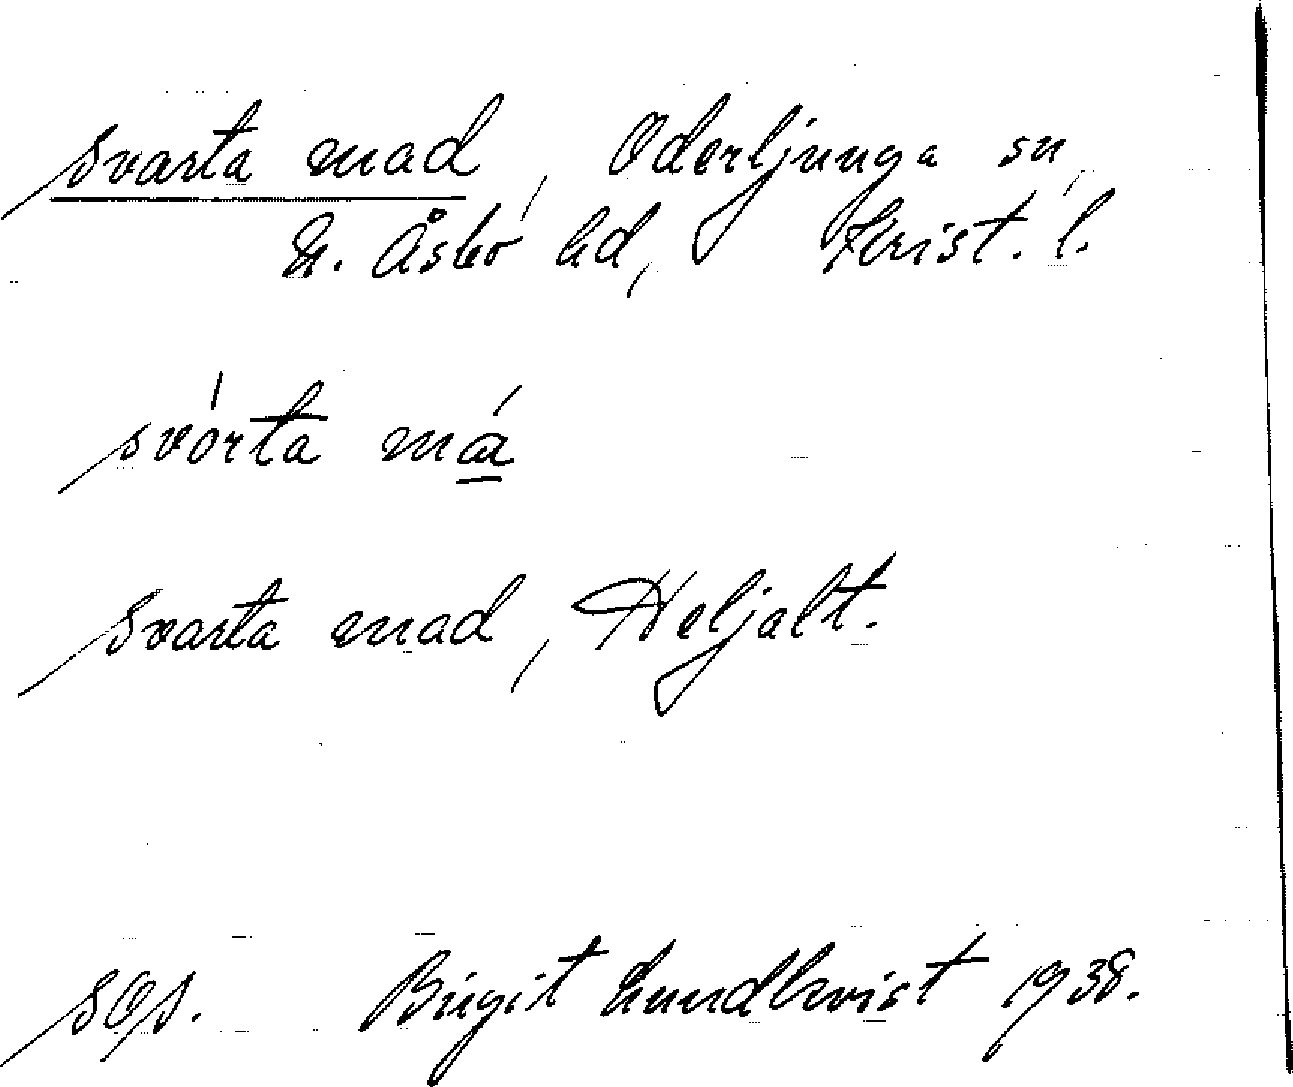 svarta mad, Oderljunga sn,
N. Åsbo hd, Krist. l.
svórta má
svarta mad, Heljalt.
SOS. Birgit Lundkvist 1938.